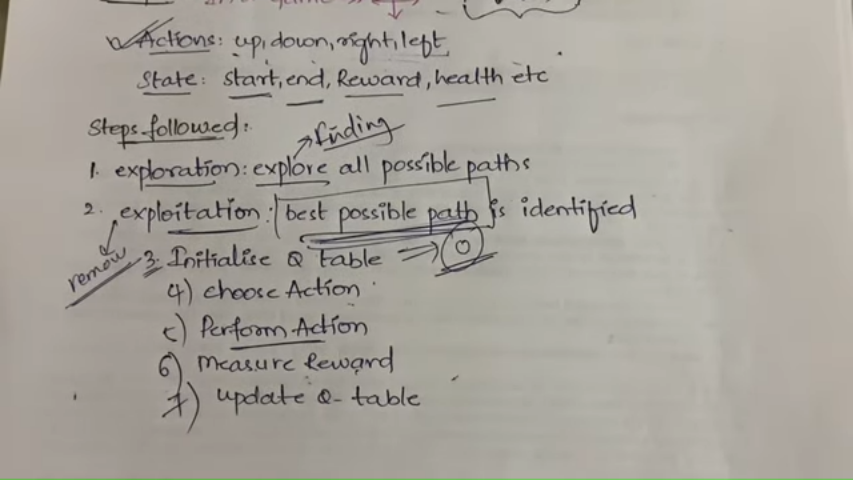 Actions: up, down, right, left
State: start, end, Reward, health etc
Steps followed:
finding
1. exploration: explore all possible paths
2. exploitation: best possible path is identified
remow
3. Initialise Q table ⇒ 0
4) choose Action
5) Perform Action
6) Measure Reward
7) update Q-table